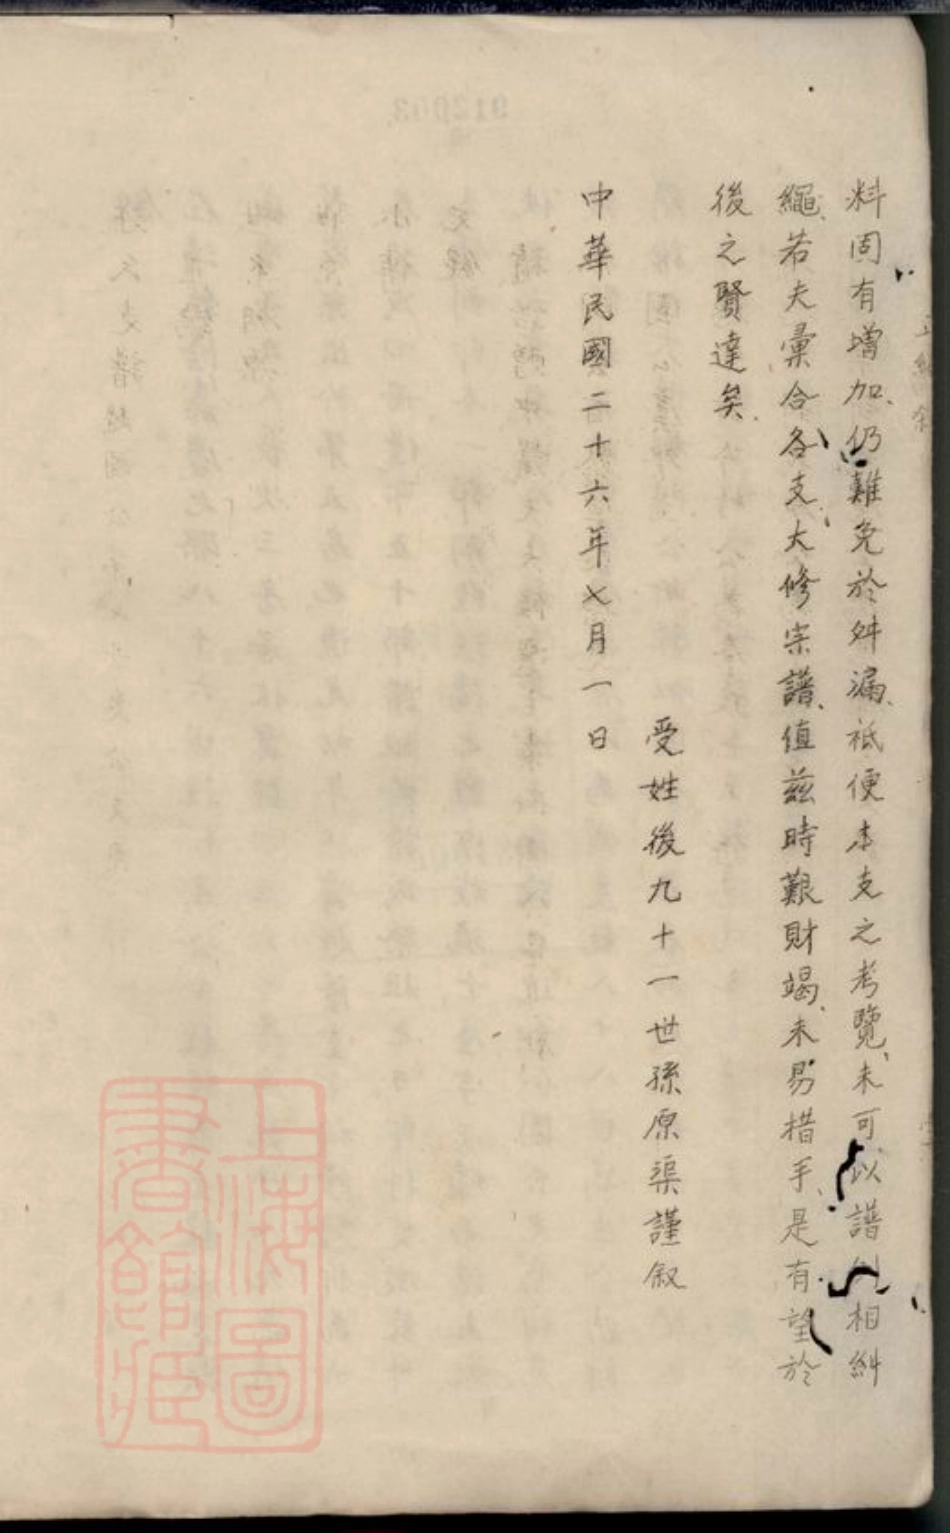 料固有增加、仍難免於舛漏、祗便本支之考覽、未可以譜例相糾
繩、若夫彙合各支、大修宗譜、值茲時艱財竭、未易措手、是有望於
後之賢達矣、
受姓後九十一世孫原渠謹叙
中華民國二十六年七月一日
上海圖書館藏